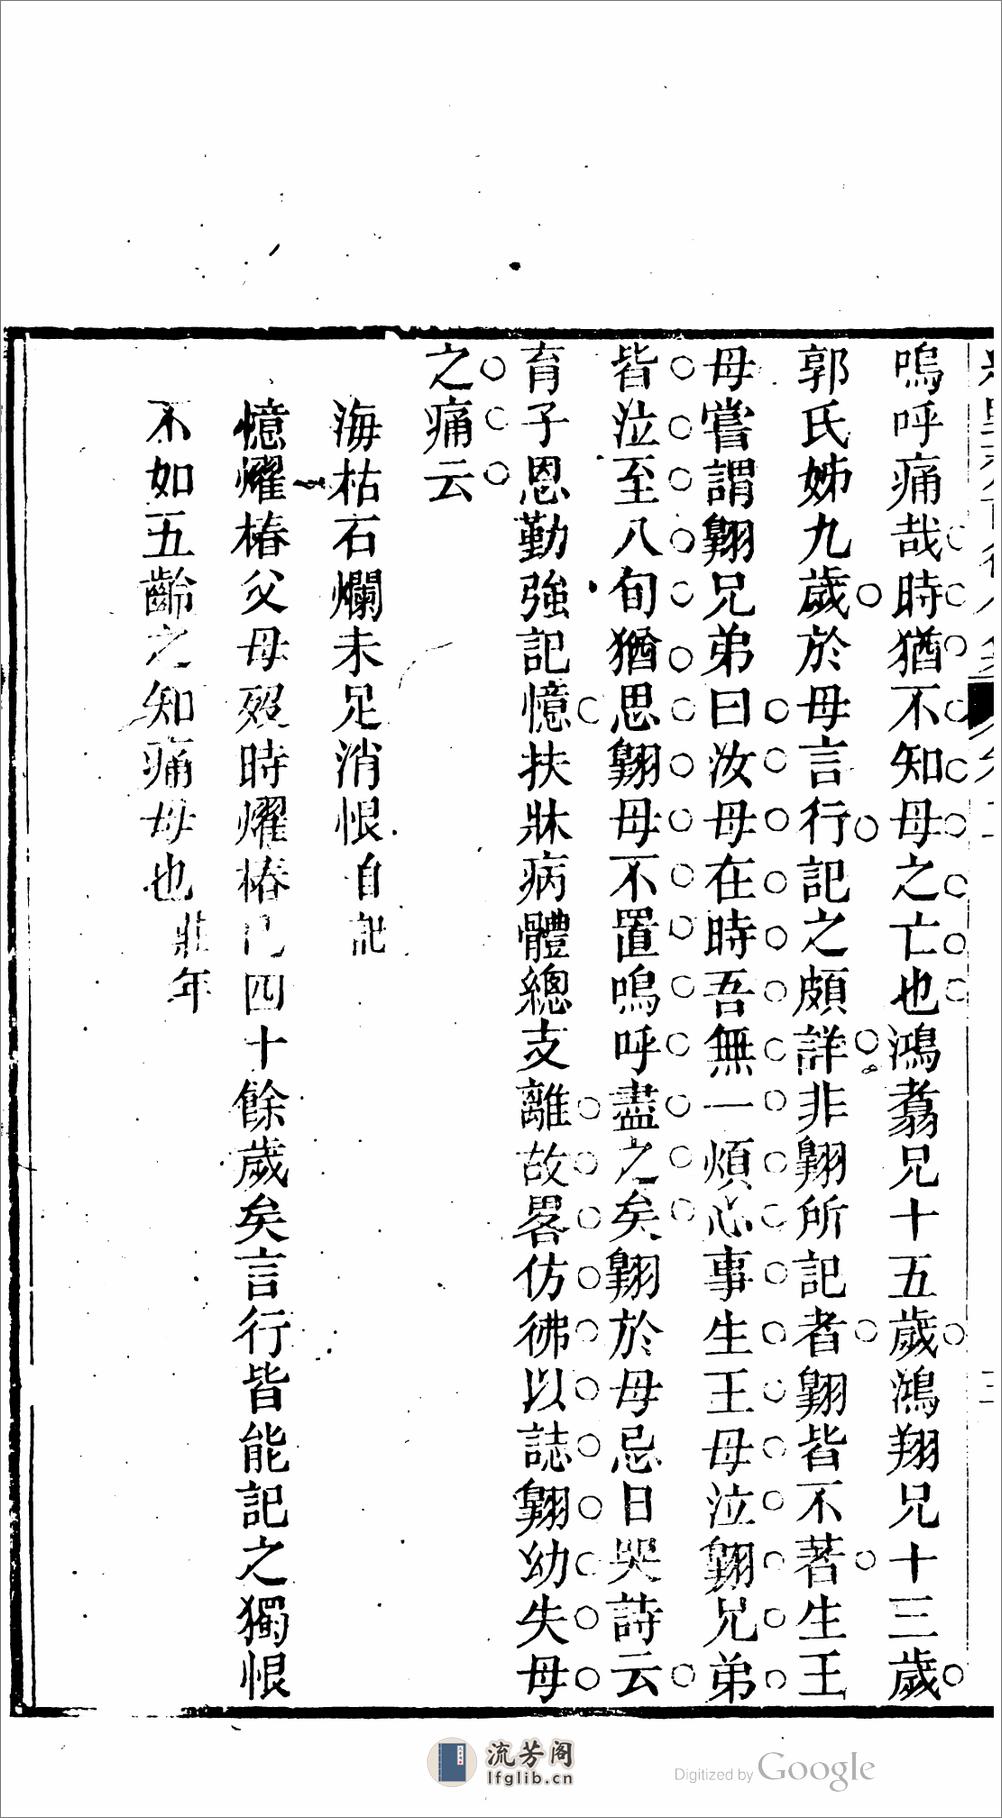 嗚呼痛哉時猶不知母之亡也鴻翥兄十五歲鴻翔兄十三歲
郭氏姊九歲於母言行記之頗詳非翺所記者翺皆不著生王
母嘗謂翺兄弟曰汝母在時吾無一煩心事生王母泣翺兄弟
皆泣至八旬猶思翺母不置嗚呼盡之矣翺於母忌日哭詩云
育子恩勤強記憶扶牀病體總支離故畧仿彿以誌翺幼失母
之痛云
海枯石爛未足消恨自記
憶燿椿父母歿時燿椿已四十餘歲矣言行皆能記之獨恨
不如五齡之知痛母也 年
流芳阁
lfglib.cn
Digitized by Google